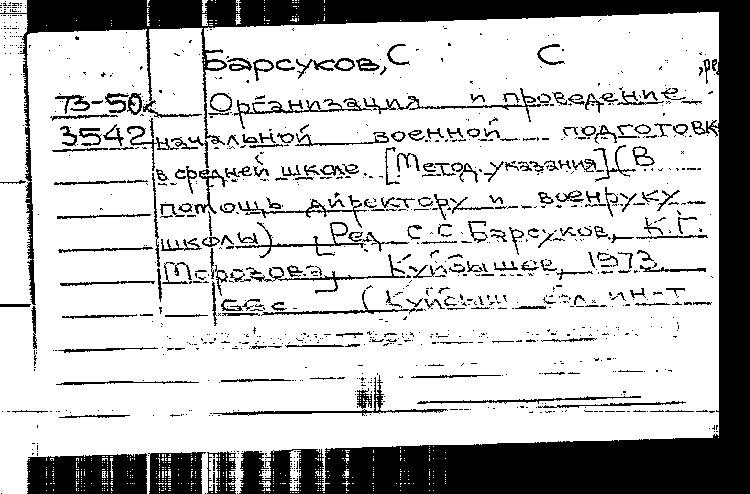 Барсуков, С С , ре
73-50к Организация и проведение
3542 начальной военной подготовк
в средней школе. [Метод. указания] (В
помощь директору и военруку
школы) [Ред С.С. Барсуков, К.Г.
Морозова] Куйбышев, 1973.
66 с (Куйбыш обл. ин-т